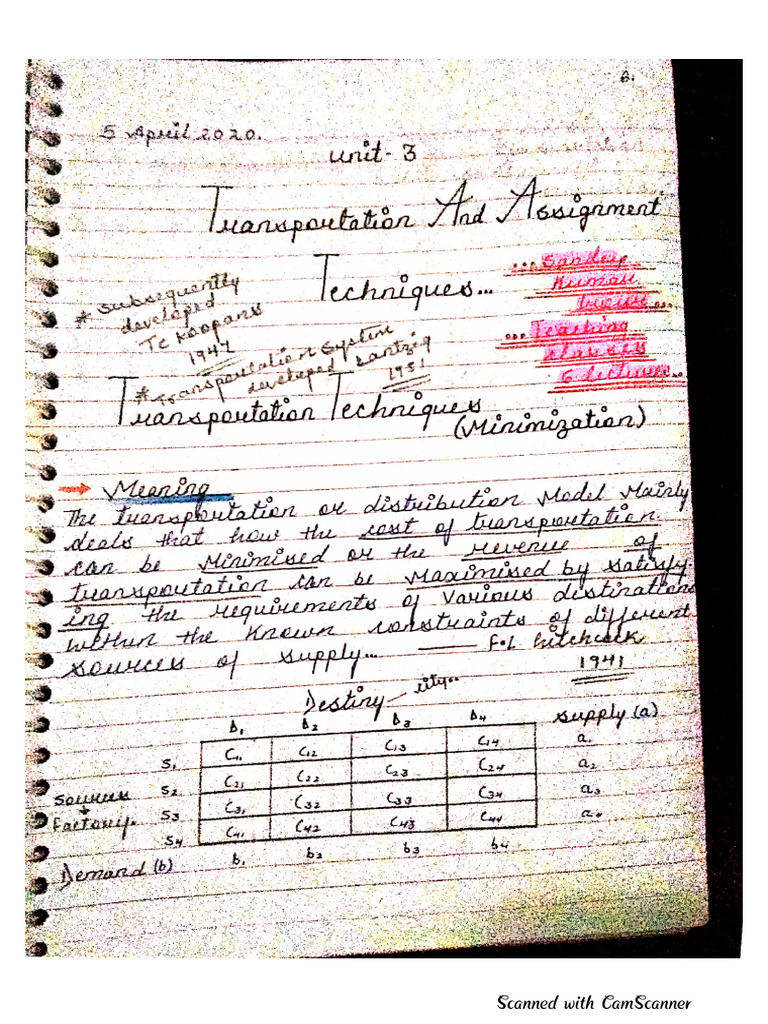 6.
5 April 2020.
Unit-3
Transportation And Assignment
Techniques...
...Sandeep
Kumar
...Teaching
classes
6 lectures...
* Subsequently
developed
TC Koopans
1947
* Transportation System
developed Dantzig
1951
Transportation Techniques
(Minimization)
→ Meaning
The transportation or distribution Model Mainly
deals that how the cost of transportation
can be Minimised or the revenue of
transportation can be Maximised by satisfy-
ing the requirements of various destinations
within the known constraints of different
sources of supply... —— F.L Hitchcock
1941
Destiny — city..
D1 D2 D3 D4 Supply (a)
S1 C11 C12 C13 C14 a1
S2 C21 C22 C23 C24 a2
S3 C31 C32 C33 C34 a3
S4 C41 C42 C43 C44 a4
Sources
↓
Factory.
Demand (b) b1 b2 b3 b4
Scanned with CamScanner